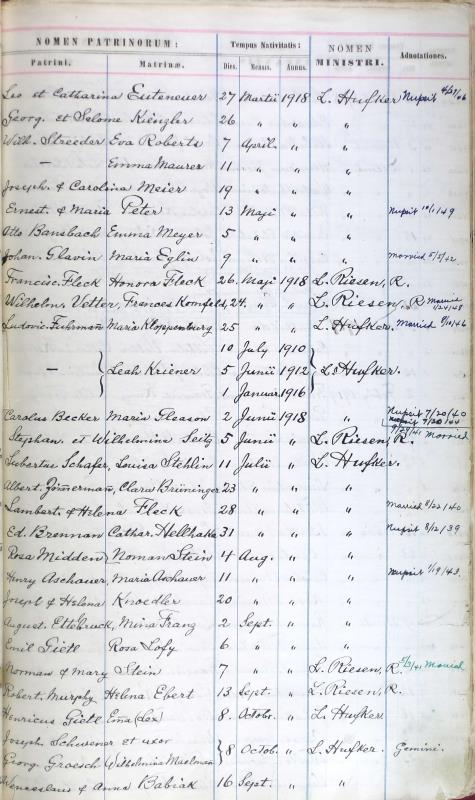 NOMEN PATRINORUM: Tempus Nativitatis: NOMEN MINISTRI. Adnotationes.
Patrini. Matrinæ. Dies. Mensis. Annus.
Leo et Catharina Euteneuer 27 Martii 1918 L. Hufker Nupsit
Georg. et Salome Kienzler 26 " " "
Wilh. Streeder Eva Roberts 7 April. " "
— Emma Maurer 11 " " "
Joseph. & Carolina Meier 19 " " "
Ernest. & Maria Peter 13 Maji " " Nupsit 10/1/49
Otto Bansbach Emma Meyer 5 " " "
Johan. Glavin Maria Eglin 9 " " " married 5/5/42
Francisc. Fleck Honora Fleck 26. Maji 1918 L. Riesen, R.
Wilhelm. Vetter, Frances Kornfeld, 24. " " L. Riesen, R. Married 1/24/48
Ludovic. Fuhrman Maria Kloppenburg 25 " " L. Hufker. Married 9/10/46
10 July 1910
— Leah Kriener 5 Junii 1912 L. Hufker.
1 Januar. 1916
Carolus Becker Maria Gleason 2 Junii 1918 " Nupsit 7/20/40
Stephan. et Wilhelmina Seitz 5 Junii " L. Riesen, R. Married
Lubertus Schafer, Louisa Stehlin 11 Julii " L. Hufker.
Albert. Zimmerman, Clara Brüninger 23 " " "
Lambert. & Helena Fleck 28 " " " Married 6/22/40
Ed. Brennan Cathar. Hellhake 31 " " " Nupsit 8/12/39
Rosa Midden Noman Stein 4 Aug. " "
Henry Aschauer, Maria Aschauer 11 " " " Nupsit 1/9/43.
Joseph & Helena Knoedler 20 " " "
August. Ettebruck, Mina Franz 2 Sept. " "
Emil Gietl Rosa Lofy 6 " " "
Norman & Mary Stein 7 " " L. Riesen, R. 5/3/41 Married
Robert. Murphy Helena Ebert 13 Sept. " L. Riesen, R.
Henricus Gietl Ema (Lex) 8. Octobr. " L. Hufker
Joseph Schwener et uxor
Georg. Groesch (Wilhelmina Muelman 8 Octob. " L. Hufker. Gemini.
Wenceslaus & Anna Babiak 16 Sept. " "